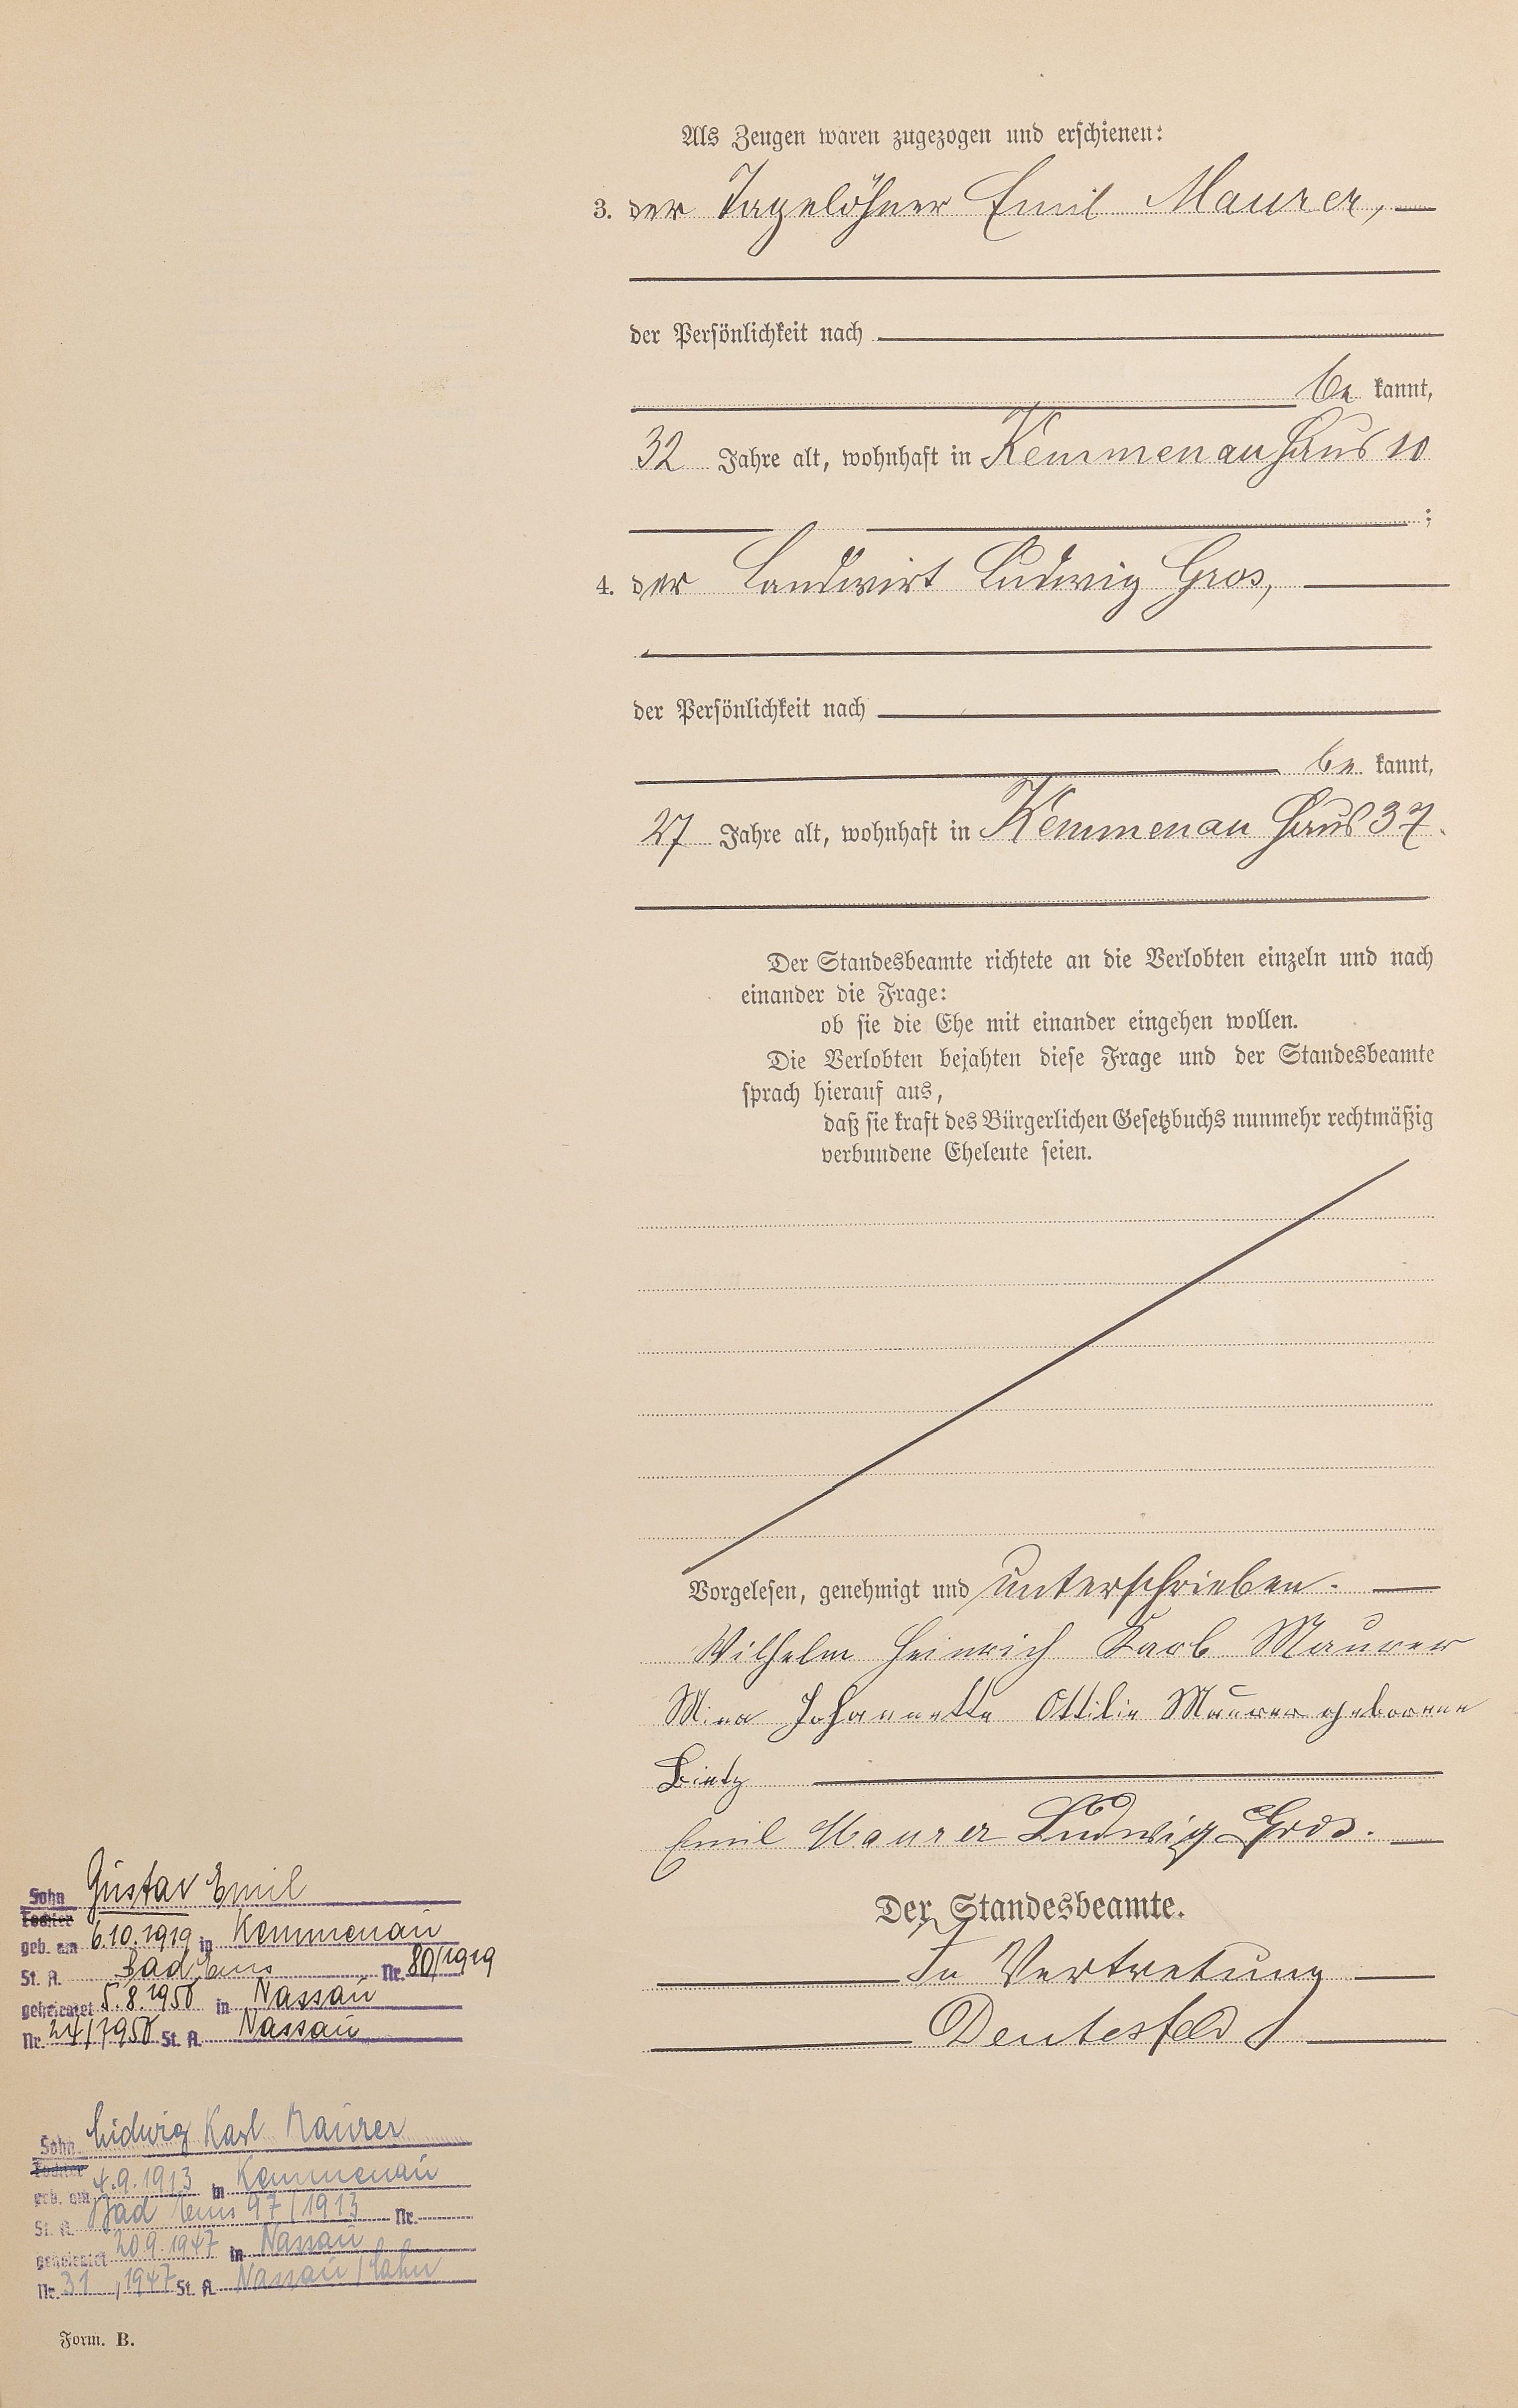 Als Zeugen waren zugezogen und erschienen:
3. der Tagelöhner Emil Maurer,
der Persönlichkeit nach
be kannt,
32 Jahre alt, wohnhaft in Kemmenau Haus 10
;
4. der Landwirt Ludwig Gros,
der Persönlichkeit nach
be kannt,
27 Jahre alt, wohnhaft in Kemmenau Haus 37.
Der Standesbeamte richtete an die Verlobten einzeln und nach
einander die Frage:
ob sie die Ehe mit einander eingehen wollen.
Die Verlobten bejahten diese Frage und der Standesbeamte
sprach hierauf aus,
daß sie kraft des Bürgerlichen Gesetzbuchs nunmehr rechtmäßig
verbundene Eheleute seien.
Vorgelesen, genehmigt und unterschrieben.
Wilhelm Heinrich Karl Maurer
Mina Johannette Ottilie Maurer geborene
Lintz
Emil Maurer Ludwig Gros.
Der Standesbeamte.
In Vertretung
Deutesfeld
Sohn Gustav Emil
Tochter
geb. am 6.10.1919 in Kemmenau
St. A. Bad Ems Nr. 80/1919
geheiratet 5.8.1950 in Nassau
Nr. 24/1950 St. A. Nassau
Sohn Ludwig Karl Maurer
Tochter
geb. am 4.9.1913 in Kemmenau
St. A. Bad Ems 97/1913 Nr.
geheiratet 20.9.1947 in Nassau
Nr. 31, 1947 St. A. Nassau/Lahn
Form. B.